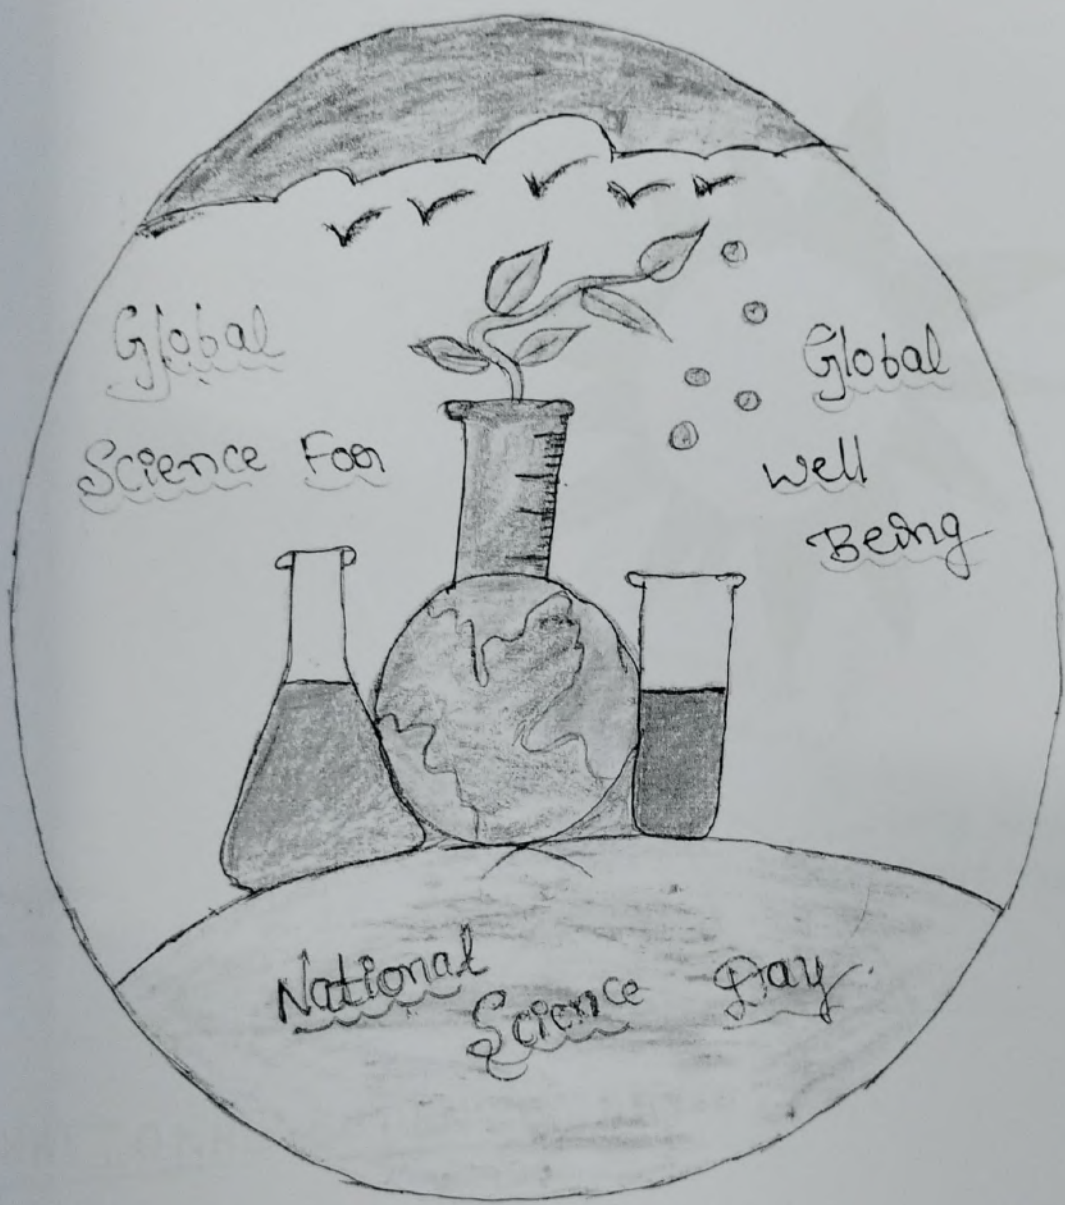 Global
Science For
Global
Well
Being
National
Science Day